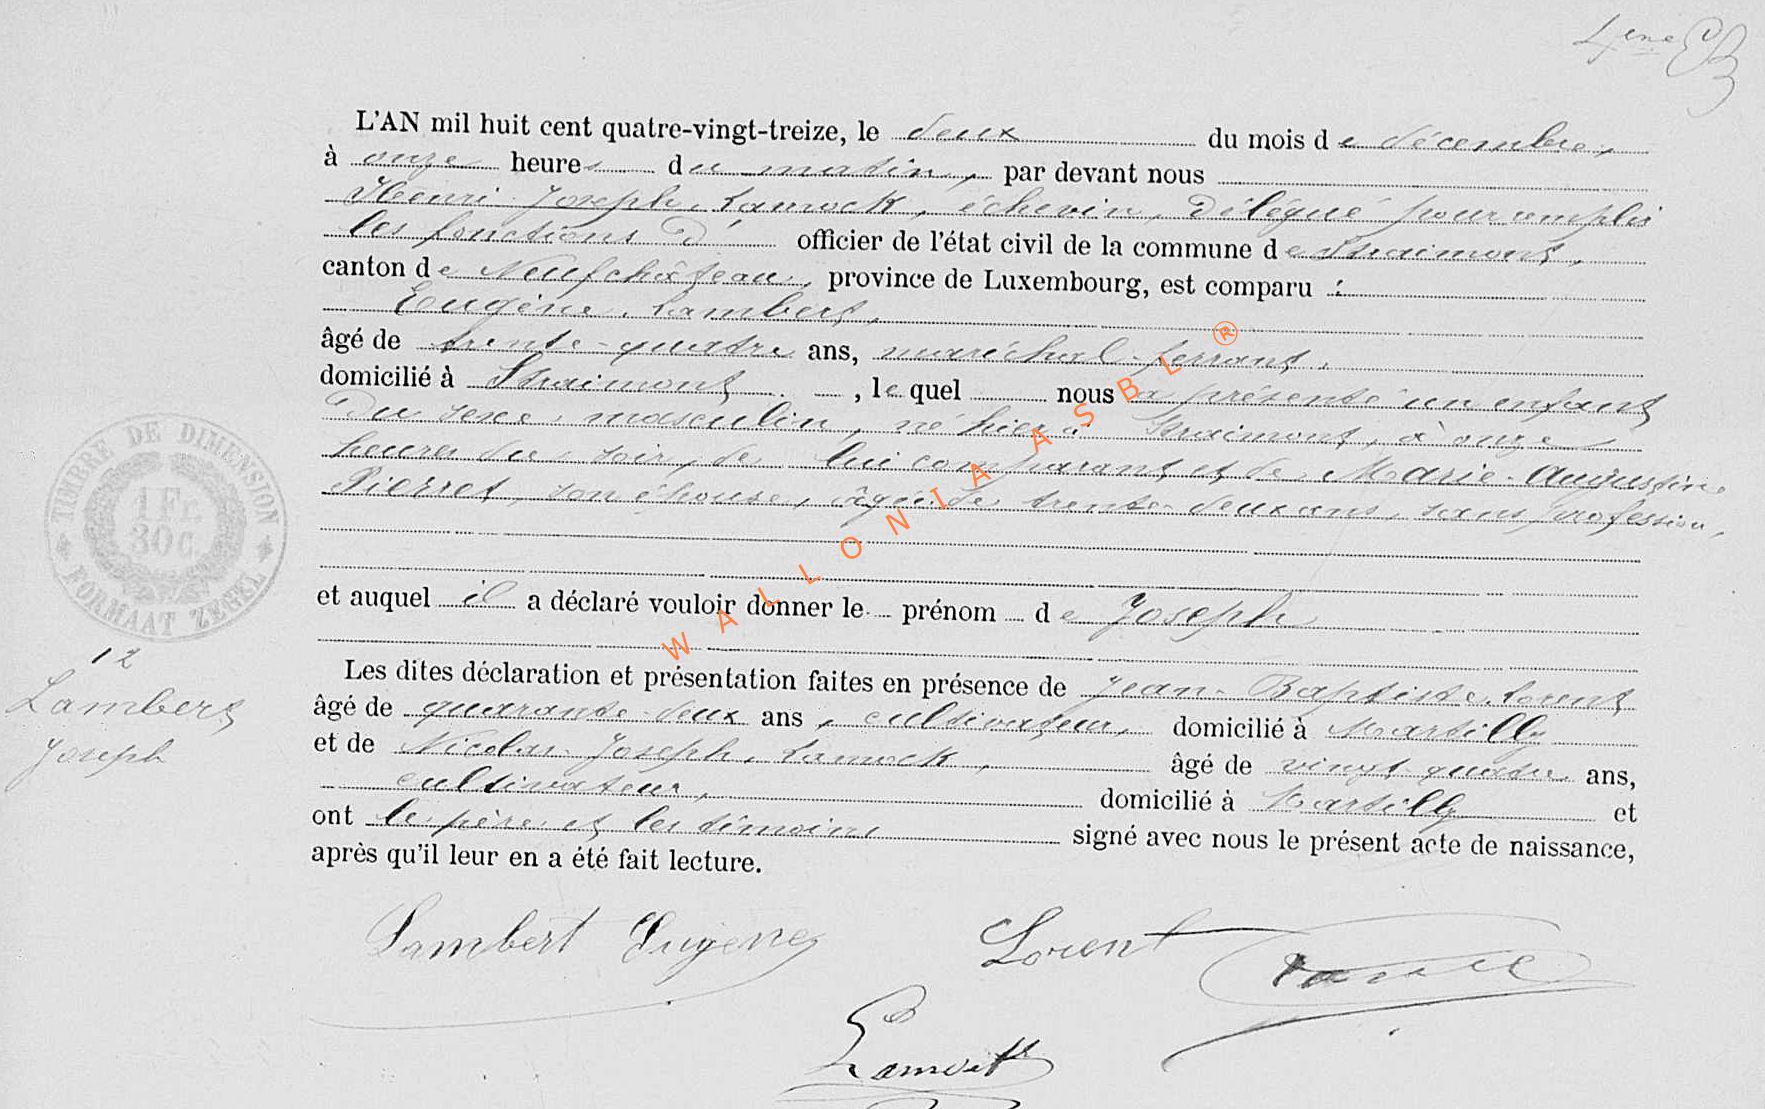 L'AN mil huit cent quatre-vingt-treize, le deux du mois de décembre,
à onze heures du matin, par devant nous
Henri Joseph Lamock, échevin, délégué pour remplir
les fonctions d' officier de l'état civil de la commune de Straimont,
canton de Neufchâteau, province de Luxembourg, est comparu :
Eugène Lambert,
âgé de trente-quatre ans, maréchal-ferrant,
domicilié à Straimont, lequel nous a présenté un enfant
du sexe masculin, né hier à Straimont, à onze
heures du soir, de lui comparant et de Marie-Augustine
Pierret, son épouse, âgée de trente-deux ans, sans profession,
et auquel il a déclaré vouloir donner le prénom de Joseph
Les dites déclaration et présentation faites en présence de Jean-Baptiste Lorent
âgé de quarante-deux ans, cultivateur, domicilié à Martilly
et de Nicolas Joseph Lamock, âgé de vingt-quatre ans,
cultivateur, domicilié à Martilly et
ont le père et les témoins signé avec nous le présent acte de naissance,
après qu'il leur en a été fait lecture.
Lambert Eugène Lorent
TIMBRE DE DIMENSION
1 Fr.
30 C.
FORMAAT ZEGEL
12
Lambert
Joseph
WALLONIA ASBL ®